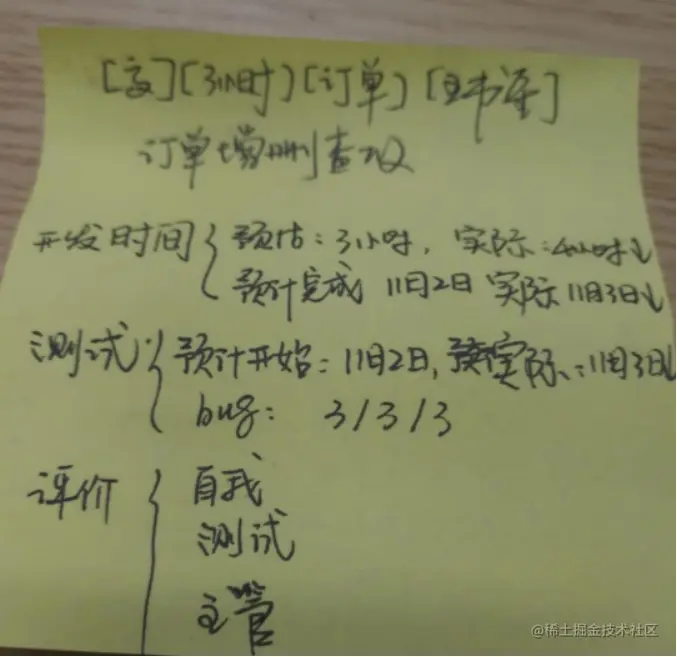 [高][3小时][订单][王书译]
订单增删查改
开发时间 { 预估:3小时, 实际:4小时↓
预计完成 11日2日 实际 11日3日↓
测试 { 预计开始:11日2日, 实际:11日3日↓
bug: 3/3/3
评价 { 自我
测试
主管
@稀土掘金技术社区